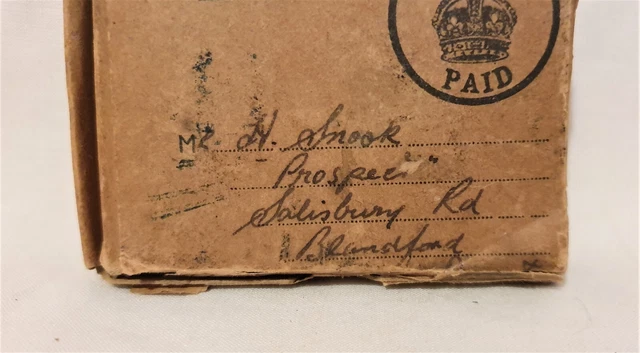 PAID
Mr. H. Snook
Prospect"
Salisbury Rd
Blandford